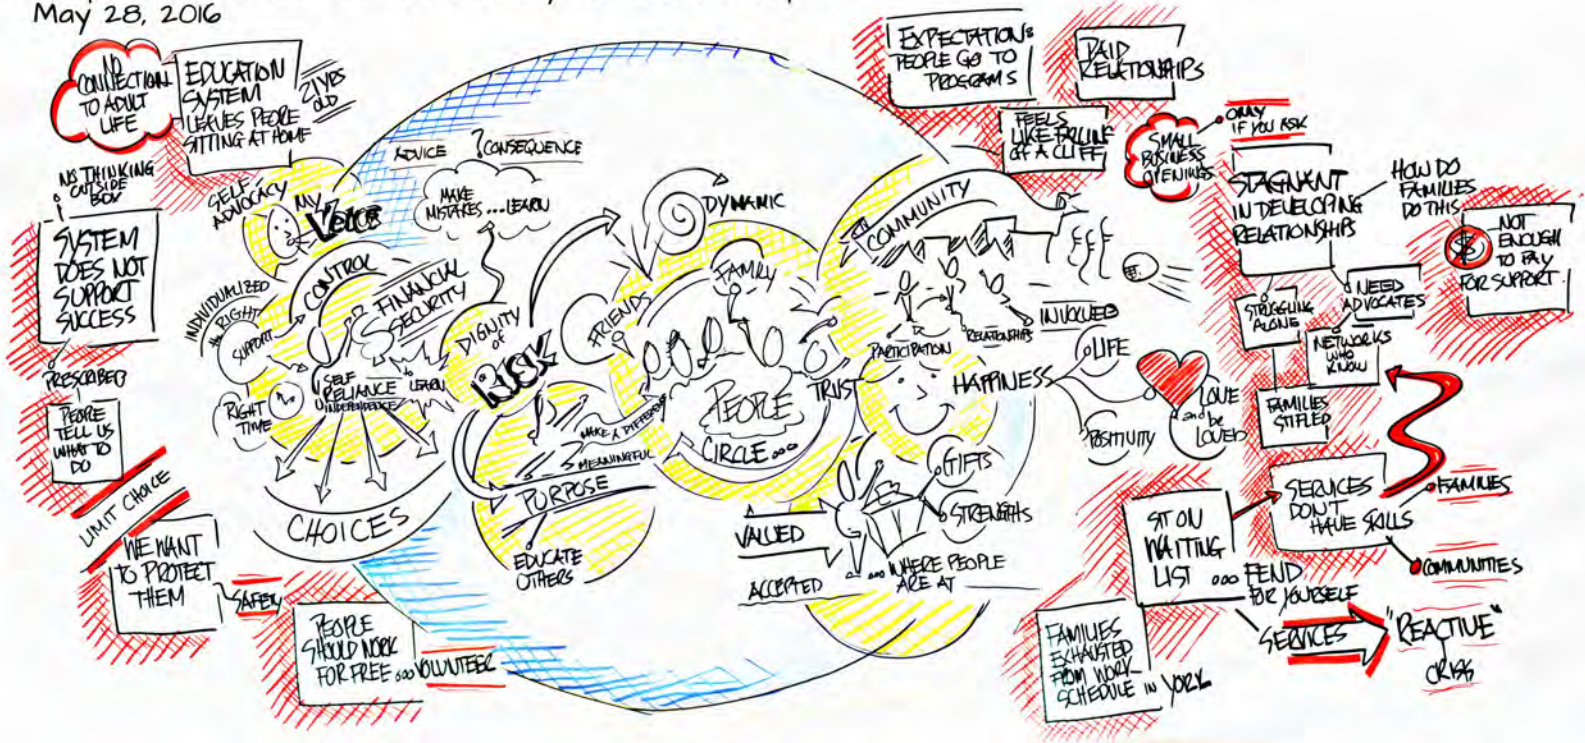 May 28, 2016
NO
CONNECTION
TO ADULT
LIFE
EDUCATION
SYSTEM
LEAVES PEOPLE
SITTING AT HOME
21 YRS
OLD
NO THINKING
OUTSIDE
BOX
SYSTEM
DOES NOT
SUPPORT
SUCCESS
PRESCRIBED
PEOPLE
TELL US
WHAT TO
DO
LIMIT CHOICE
WE WANT
TO PROTECT
THEM
SAFETY
PEOPLE
SHOULD WORK
FOR FREE ... VOLUNTEER
SELF
ADVOCACY
MY
VOICE
ADVICE
? CONSEQUENCE
MAKE
MISTAKES ... LEARN
CONTROL
INDIVIDUALIZED
RIGHT
SUPPORT
RIGHT
TIME
FINANCIAL
SECURITY
SELF
RELIANCE
INDEPENDENCE
LEARN
CHOICES
DIGNITY
OF
RISK
MAKE A DIFFERENCE
MEANINGFUL
PURPOSE
EDUCATE
OTHERS
DYNAMIC
FRIENDS
FAMILY
PEOPLE
CIRCLE ...
TRUST
COMMUNITY
PARTICIPATION
RELATIONSHIPS
INVOLVED
HAPPINESS
LIFE
LOVE
and
be
LOVED
POSITIVITY
GIFTS
STRENGTHS
VALUED
ACCEPTED
... WHERE PEOPLE
ARE AT
EXPECTATION:
PEOPLE GO TO
PROGRAMS
PAID
RELATIONSHIPS
FEELS
LIKE FALLING
OF A CLIFF
SMALL
BUSINESS
OPENINGS
ONLY
IF YOU ASK
STAGNANT
IN DEVELOPING
RELATIONSHIPS
HOW DO
FAMILIES
DO THIS
$
NOT
ENOUGH
TO PAY
FOR SUPPORT!
STRUGGLING
ALONE
NEED
ADVOCATES
NETWORKS
WHO
KNOW
FAMILIES
STIFLED
SERVICES
DON'T
HAVE SKILLS
FAMILIES
COMMUNITIES
SIT ON
WAITING
LIST ... FEND
FOR YOURSELF
SERVICES
"REACTIVE"
CRISIS
FAMILIES
EXHAUSTED
FROM WORK
SCHEDULE IN YORK